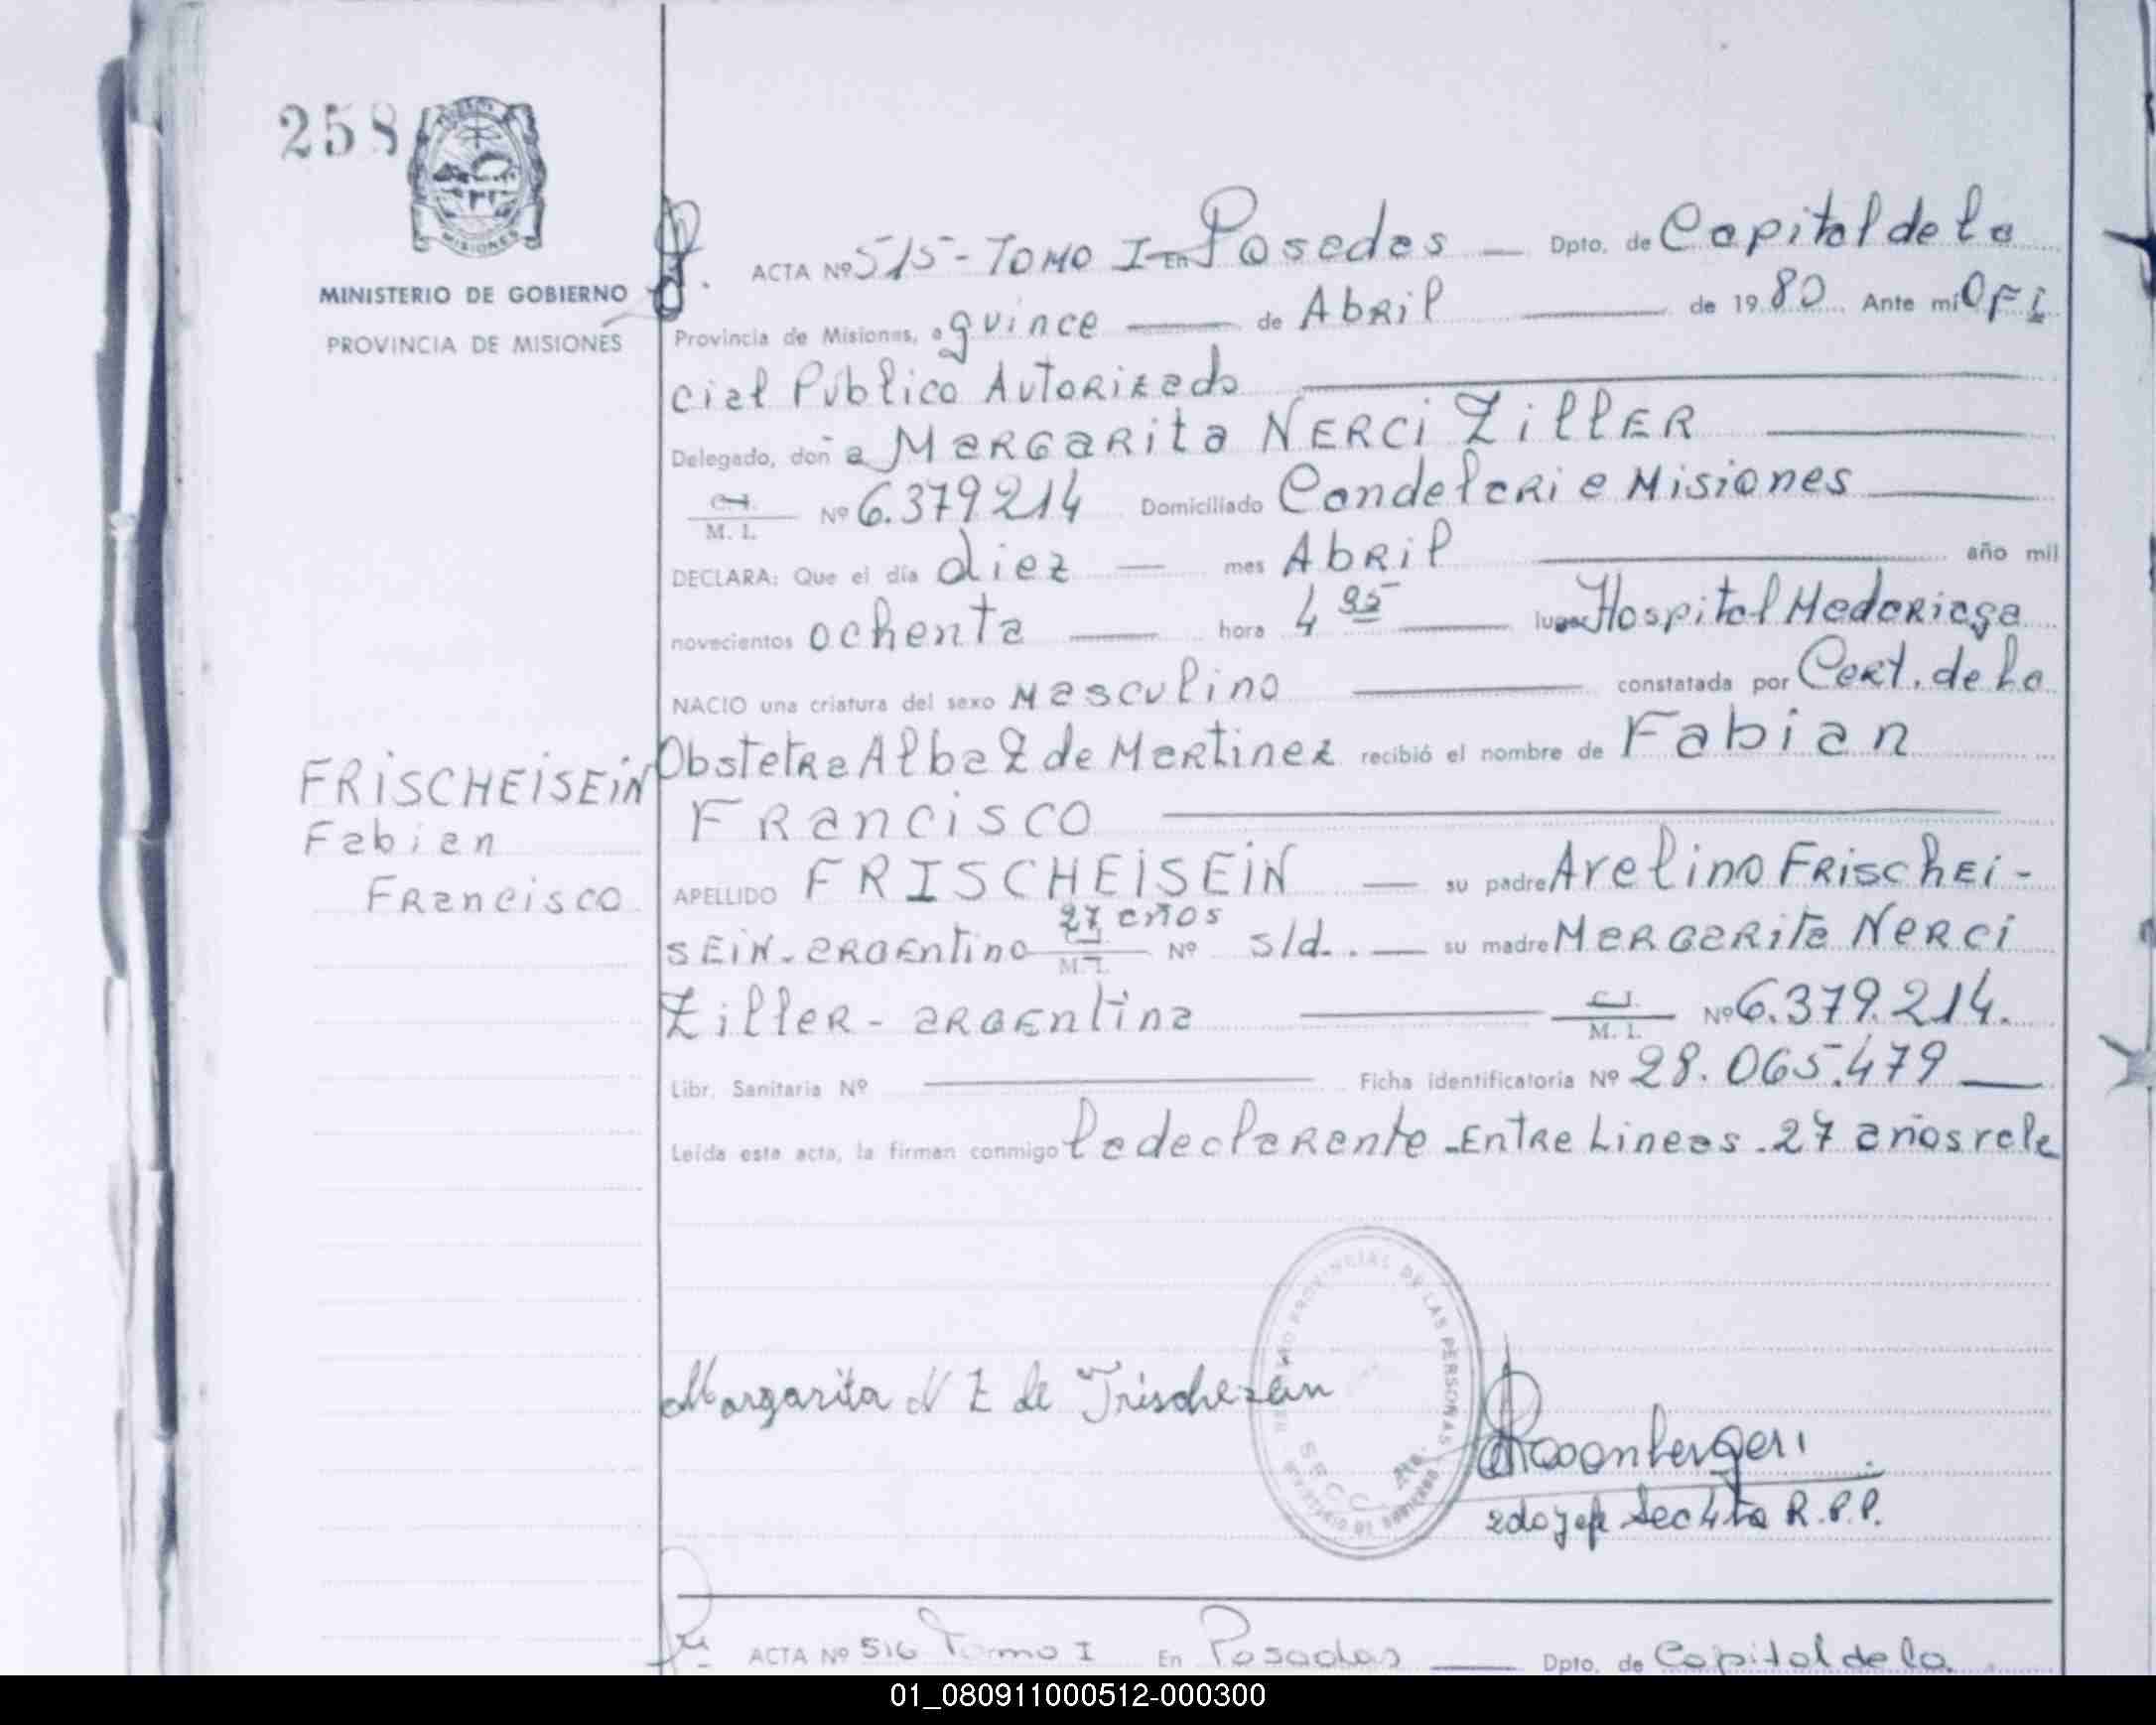 258
MISIONES
MINISTERIO DE GOBIERNO
PROVINCIA DE MISIONES
ACTA Nº 515 - TOMO I - En Posadas — Dpto. de Capital de la
Provincia de Misiones, a quince — de Abril — de 1980. Ante mí Ofi
cial Público Autorizado
Delegado, doña Margarita NERCi ZillER
C.I. M. I. Nº 6.379.214 Domiciliado Candelaria Misiones
DECLARA: Que el día diez — mes Abril — año mil
novecientos ochenta — hora 4 35 — lugar Hospital Madariaga
NACIO una criatura del sexo Masculino — constatada por Cert. de La
Obstetra Alba Z de Martinez recibió el nombre de Fabian
Francisco
FRISCHEISEIN
Fabian
Francisco
APELLIDO FRISCHEISEIN — su padre Avelino Frischei-
27 años
SEiN - argentino M. I. Nº s/d. — su madre Margarita Nerci
Ziller - argentina — C.I. M. I. Nº 6.379.214.
Libr. Sanitaria Nº — Ficha identificatoria Nº 28.065.479 —
Leída esta acta, la firman conmigo la declarante - Entre Lineas - 27 años vale
PROVINCIAL DE LAS PERSONAS
SECC. 4ta.
Margarita N Z de Frischezein
2do Jefe Secc 4ta R.P.P.
ACTA Nº 516 Tomo I En Posadas — Dpto. de Capital de la
01_080911000512-000300